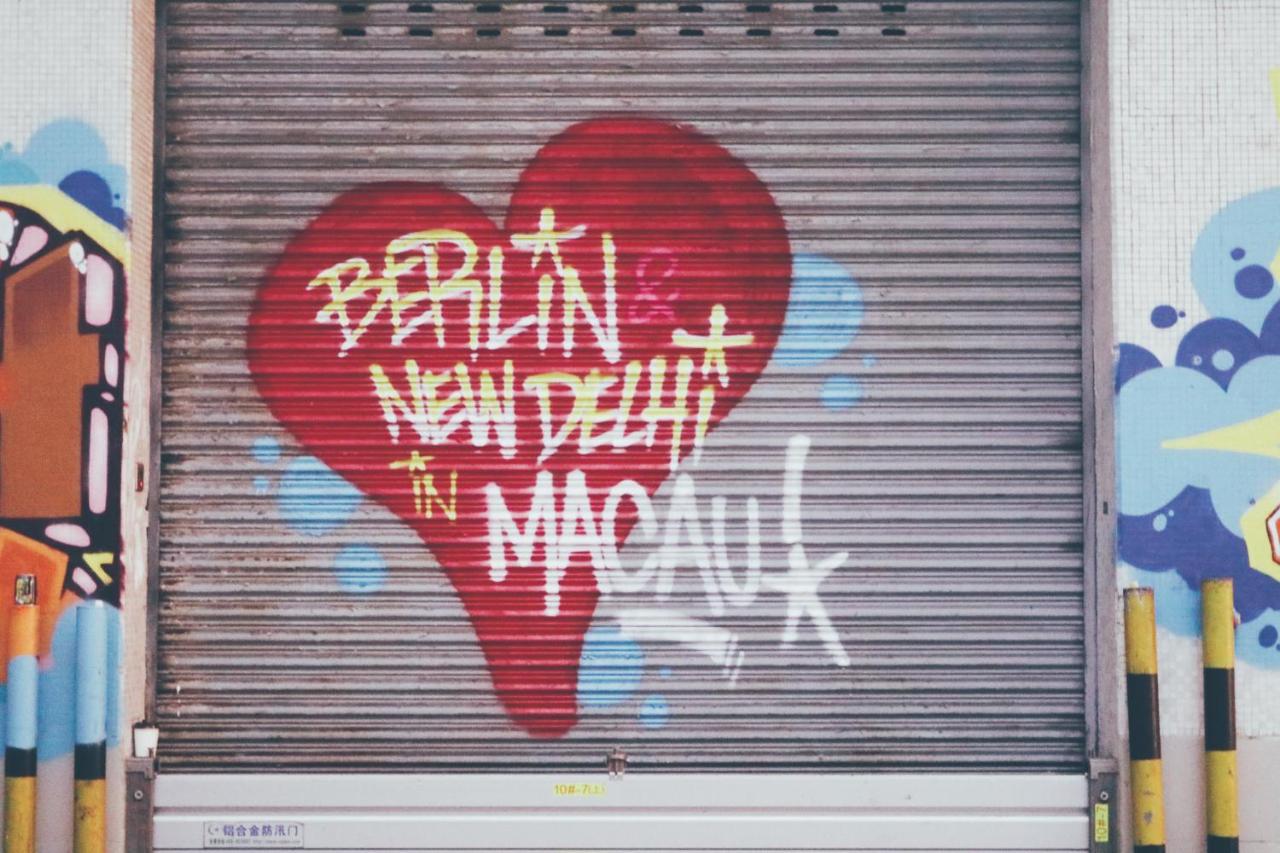 BERLIN &
NEW DELHI
IN MACAU!
10#-7(上)
铝合金防汛门
10#-7